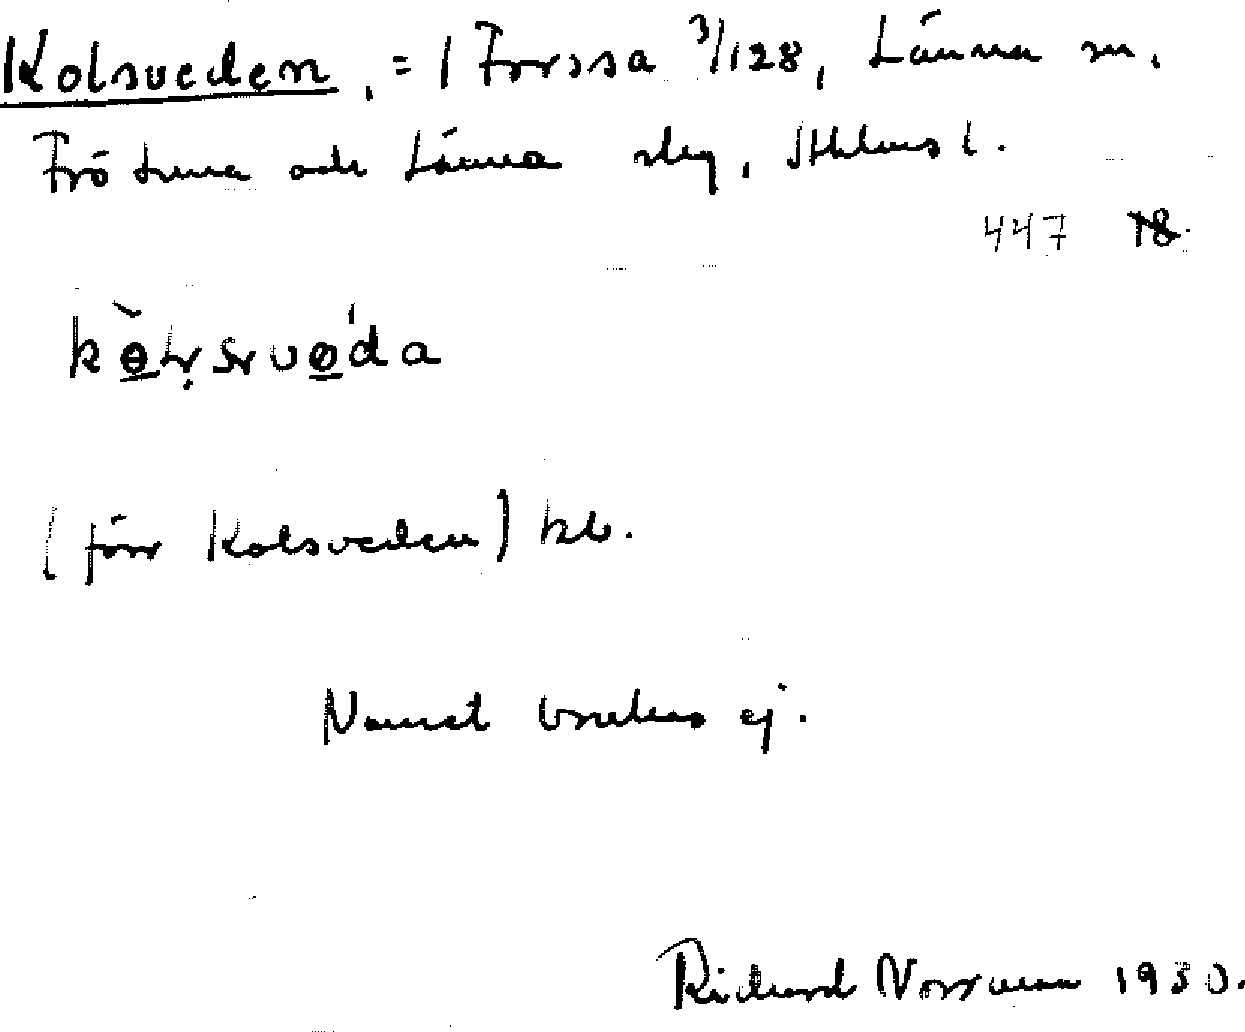 Kolsveden, = 1 Forssa 3/128, Länna sn.
Frötuna och Länna skg, Sthlms l.
447 18
(förr Kolsveden) kb.
Namnet brukas ej.
Richard Norrman 1930.